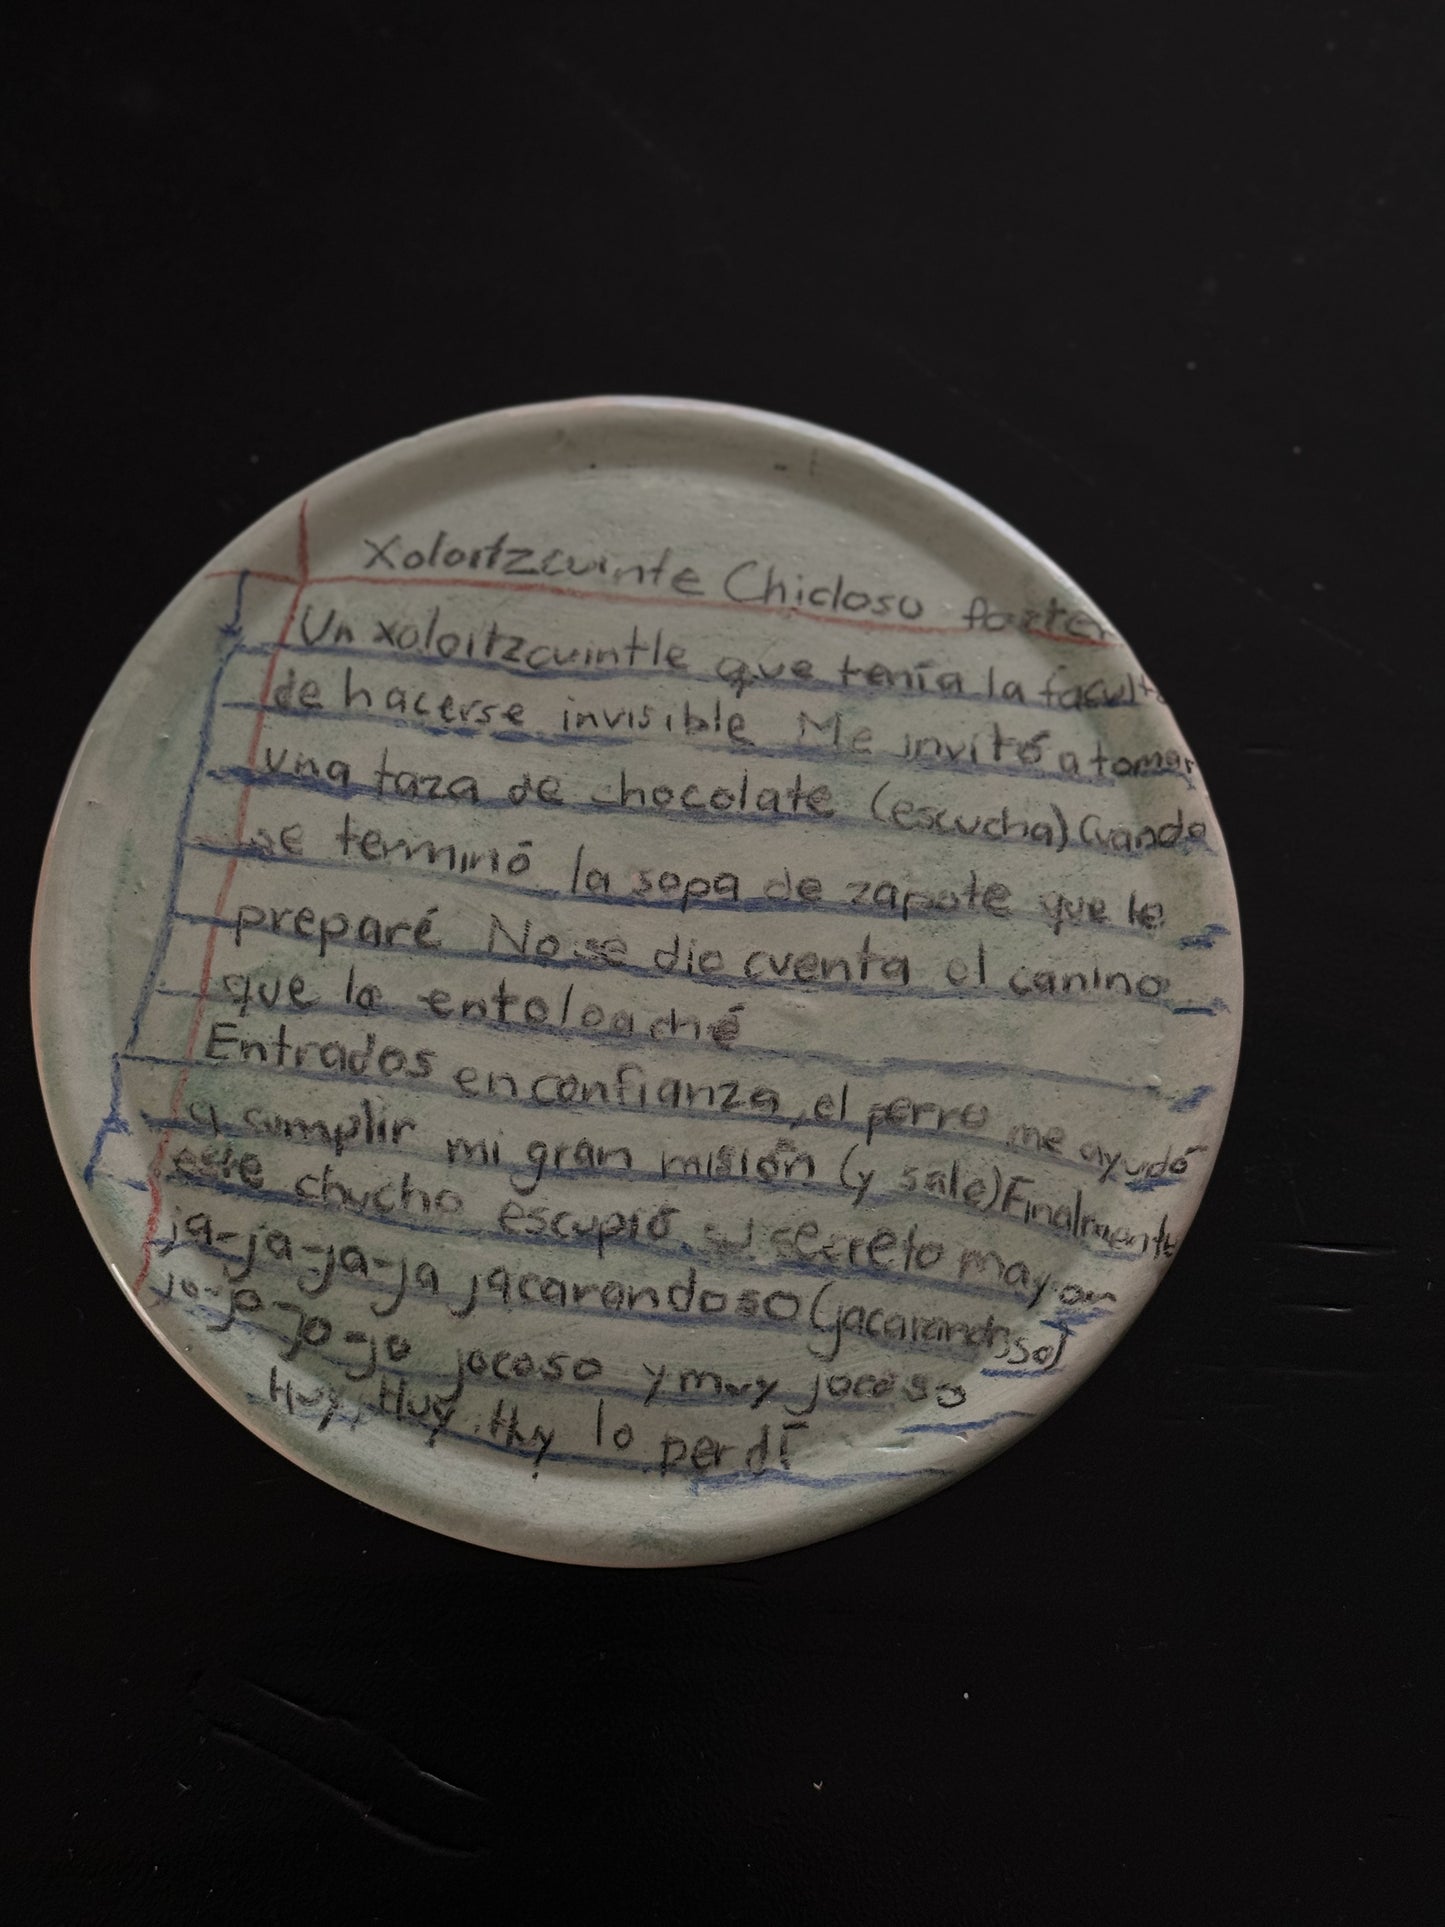 Xoloitzcuinte Chicloso
Un xoloitzcuintle que tenía la facult
de hacerse invisible Me invitó a tomar
una taza de chocolate (escucha) Cuando
se terminó la sopa de zapote que le
preparé No se dio cuenta el canino
que lo entoloaché
Entrados en confianza, el perro me ayudó
a cumplir mi gran misión (y sale) Finalmente
este chucho escupió su secreto mayor
ja-ja-ja-ja jacarandoso (jacarandoso)
jo-jo-jo-jo jocoso y muy jocoso
Huy, Huy, Huy lo perdí